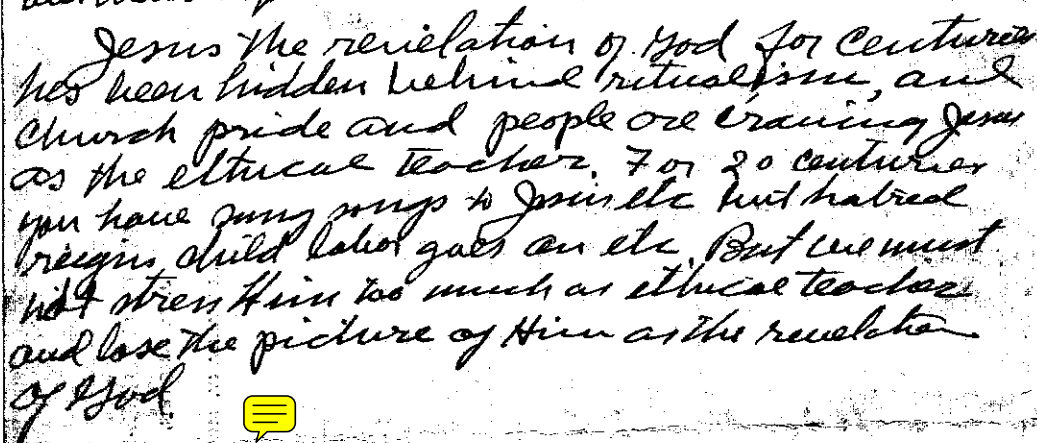 Jesus the revelation of God for centuries
has been hidden behind ritualism, and
church pride and people are craving Jesus
as the ethical teacher. For 20 centuries
you have sung songs to Jesus etc but hatred
reigns, child labor goes on etc. But we must
not stress Him too much as ethical teacher
and lose the picture of Him as the revelation
of God.